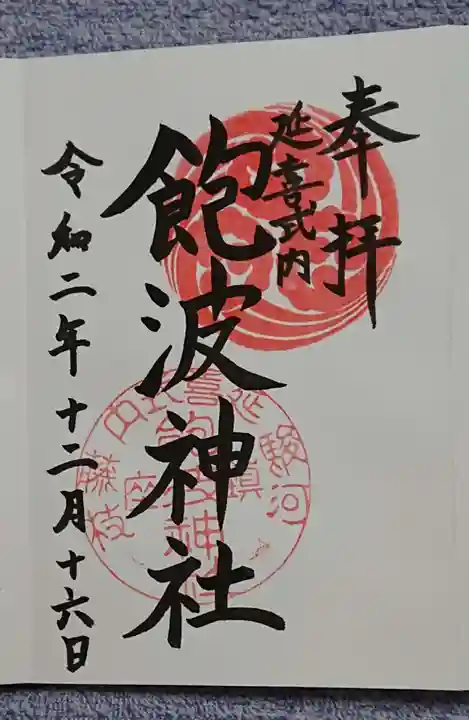 奉拝
延喜式内
飽波神社
令和二年十二月十六日
延喜式内
駿河
藤枝
鎮座
飽波神社